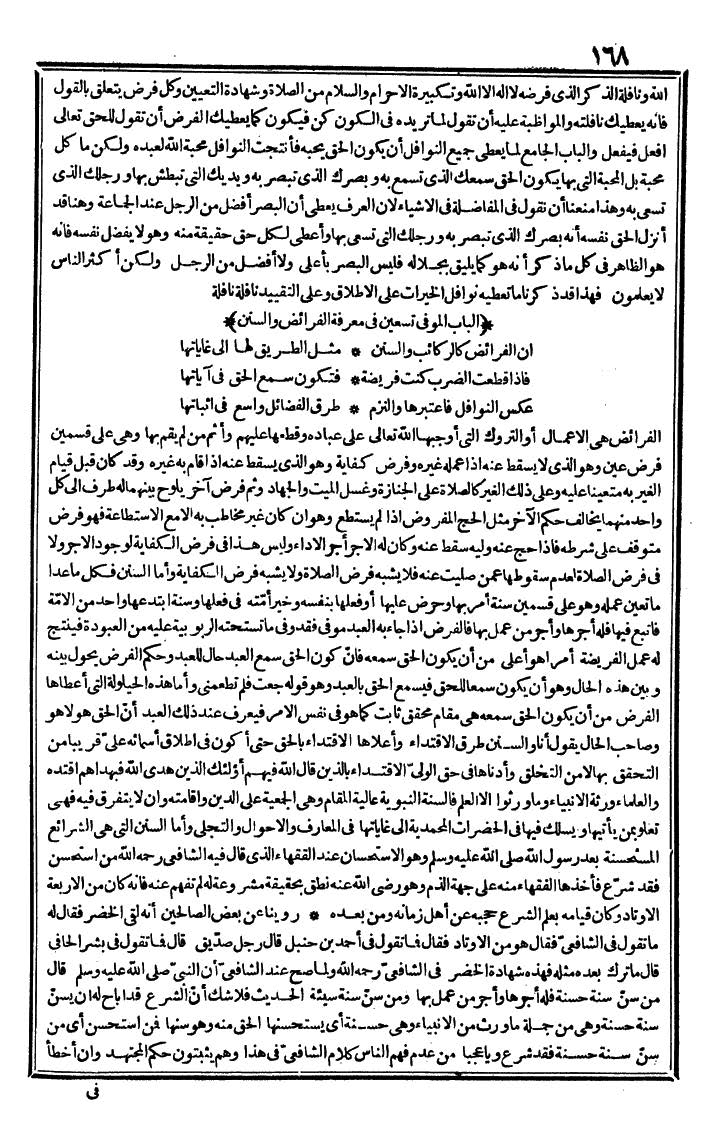 ١٦٨
الله ونافلة الذكر الذي فرضه لا اله الا الله وتكبيرة الاحرام والسلام من الصلاة وشهادة التعيين وكل فرض يتعلق بالقول
فانه يعطيك نافلته والمواظبة عليه أن تقول لما تريده فى الكون كن فيكون كما يعطيك الفرض أن تقول للحق تعالى
افعل فيفعل والباب الجامع لما يعطى جميع النوافل أن يكون الحق يحبه فأنتجت النوافل محبة الله لعبده ولكن ما كل
محبة بل المحبة التى بها يكون الحق سمعك الذى تسمع به وبصرك الذى تبصر به ويديك التى تبطش بها ورجلك الذى
تسعى به وهذا منعنا أن نقول فى المفاضلة فى الاشياء لان العرف يعطى أن البصر أفضل من الرجل عند الجماعة وهنا قد
أنزل الحق نفسه أنه بصرك الذى تبصر به ورجلك التى تسعى بها وأعطى لكل حق حقيقة منه وهو لا يفضل نفسه فانه
هو الظاهر فى كل ما ذكر أنه هو كما يليق بجلاله فليس البصر بأعلى ولا أفضل من الرجل ولكن أكثر الناس
لا يعلمون فهذا قد ذكرنا ما تعطيه نوافل الخيرات على الاطلاق وعلى التقييد نافلة نافلة
﴿الباب الموفى تسعين فى معرفة الفرائض والسنن﴾
ان الفرائض كالركائب والسنن * مثل الطريق لها الى غاياتها
فاذا قطعت الضرب كنت فريضة * فتكون سمع الحق فى آياتها
عكس النوافل فاعتبرها والتزم * طرق الفضائل واسع فى اثباتها
الفرائض هى الاعمال أو التروك التى أوجبها الله تعالى على عباده وقطعها عليهم وأثم من لم يقم بها وهى على قسمين
فرض عين وهو الذى لا يسقط عنه اذا عمله غيره وفرض كفاية وهو الذى يسقط عنه اذا قام به غيره وقد كان قبل قيام
الغير به متعينا عليه وعلى ذلك الغير كالصلاة على الجنازة وغسل الميت والجهاد وثم فرض آخر يلوح بينهما له طرف الى كل
واحد منهما يخالف حكم الآخر مثل الحج المفروض اذا لم يستطع وهو ان كان غير مخاطب به الامع الاستطاعة فهو فرض
متوقف على شرطه فاذا حج عنه وليه سقط عنه وكان له الاجر أجر الاداء وليس هذا فى فرض الكفاية لوجود الاجر ولا
فى فرض الصلاة لعدم سقوطها عمن صليت عنه فلا يشبه فرض الصلاة ولا يشبه فرض الكفاية وأما السنن فكل ما عدا
ما تعين عمله وهو على قسمين سنة أمر بها وحرض عليها أو فعلها بنفسه وخير أمّته فى فعلها وسنة ابتدعها واحد من الامّة
فاتبع فيها فله أجرها وأجر من عمل بها فالفرض اذا جاء به العبد موفى فقد وفى ما تستحقه الربوبية عليه من العبودة فينتج
له عمل الفريضة أمرا هو أعلى من أن يكون الحق سمعه فانّ كون الحق سمع العبد حال للعبد وحكم الفرض يحول بينه
وبين هذه الحال وهو أن يكون سمعا للحق فيسمع الحق بالعبد وهو قوله جعت فلم تطعمنى وأما هذه الحيلولة التى أعطاها
الفرض من أن يكون الحق سمعه هى مقام محقق ثابت كما هو فى نفس الامر فيعرف عند ذلك العبد أنّ الحق هو لا هو
وصاحب الحال يقول أنا والسنن طرق الاقتداء وأعلاها الاقتداء بالحق حتى أكون فى اطلاق أسمائه علىّ قريبا من
التحقق بها لا من التخلق وأدناها فى حق الولىّ الاقتداء بالذين قال الله فيهم أولئك الذين هدى الله فبهداهم اقتده
والعلماء ورثة الانبياء وما ورثوا الا العلم فالسنة النبوية عالية المقام وهى الجمعية على الدين واقامته وان لا يتفرق فيه فهى
تعلو بمن يأتيها ويسلك فيها فى الحضرات المحمدية الى غاياتها فى المعارف والاحوال والتجلى وأما السنن التى هى الشرائع
المستحسنة بعد رسول الله صلى الله عليه وسلم وهو الاستحسان عند الفقهاء الذى قال فيه الشافعى رحمه الله من استحسن
فقد شرّع فأخذها الفقهاء منه على جهة الذم وهو رضى الله عنه نطق بحقيقة مشروعة له لم تفهم عنه فانه كان من الاربعة
الاوتاد وكان قيامه بعلم الشرع حجبه عن أهل زمانه ومن بعده * روينا عن بعض الصالحين أنه لقى الخضر فقال له
ما تقول فى الشافعىّ فقال هو من الاوتاد فقال فما تقول فى أحمد بن حنبل قال رجل صدّيق قال فما تقول فى بشر الحافى
قال ما ترك بعده مثله فهذه شهادة الخضر فى الشافعىّ رحمه الله ولما صح عند الشافعىّ أن النبىّ صلى الله عليه وسلم قال
من سنّ سنة حسنة فله أجرها وأجر من عمل بها ومن سنّ سنة سيئة الحديث فلا شك أنّ الشرع قد أباح له ان يسنّ
سنة حسنة وهى من جملة ما ورث من الانبياء وهى حسنة أى يستحسنها الحق منه وهو سنها فمن استحسن أى من
سنّ سنة حسنة فقد شرع ويا عجبا من عدم فهم الناس كلام الشافعىّ فى هذا وهم يثبتون حكم المجتهد وان أخطأ
فى